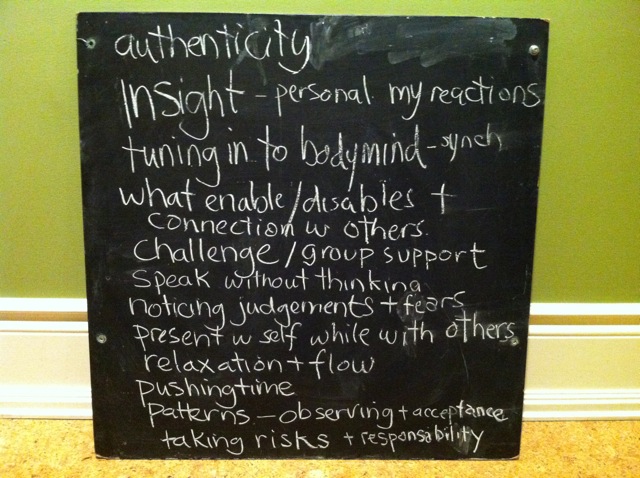 authenticity
Insight - personal. my reactions
tuning in to bodymind - synch
what enable/disables +
connection w others.
challenge/group support
speak without thinking
noticing judgements + fears
present w self while with others
relaxation + flow
pushing time
patterns - observing + acceptance
taking risks + responsability